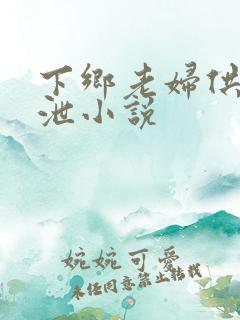 下鄉老婦供
泄小説
婉婉可愛
未任同意禁止转载